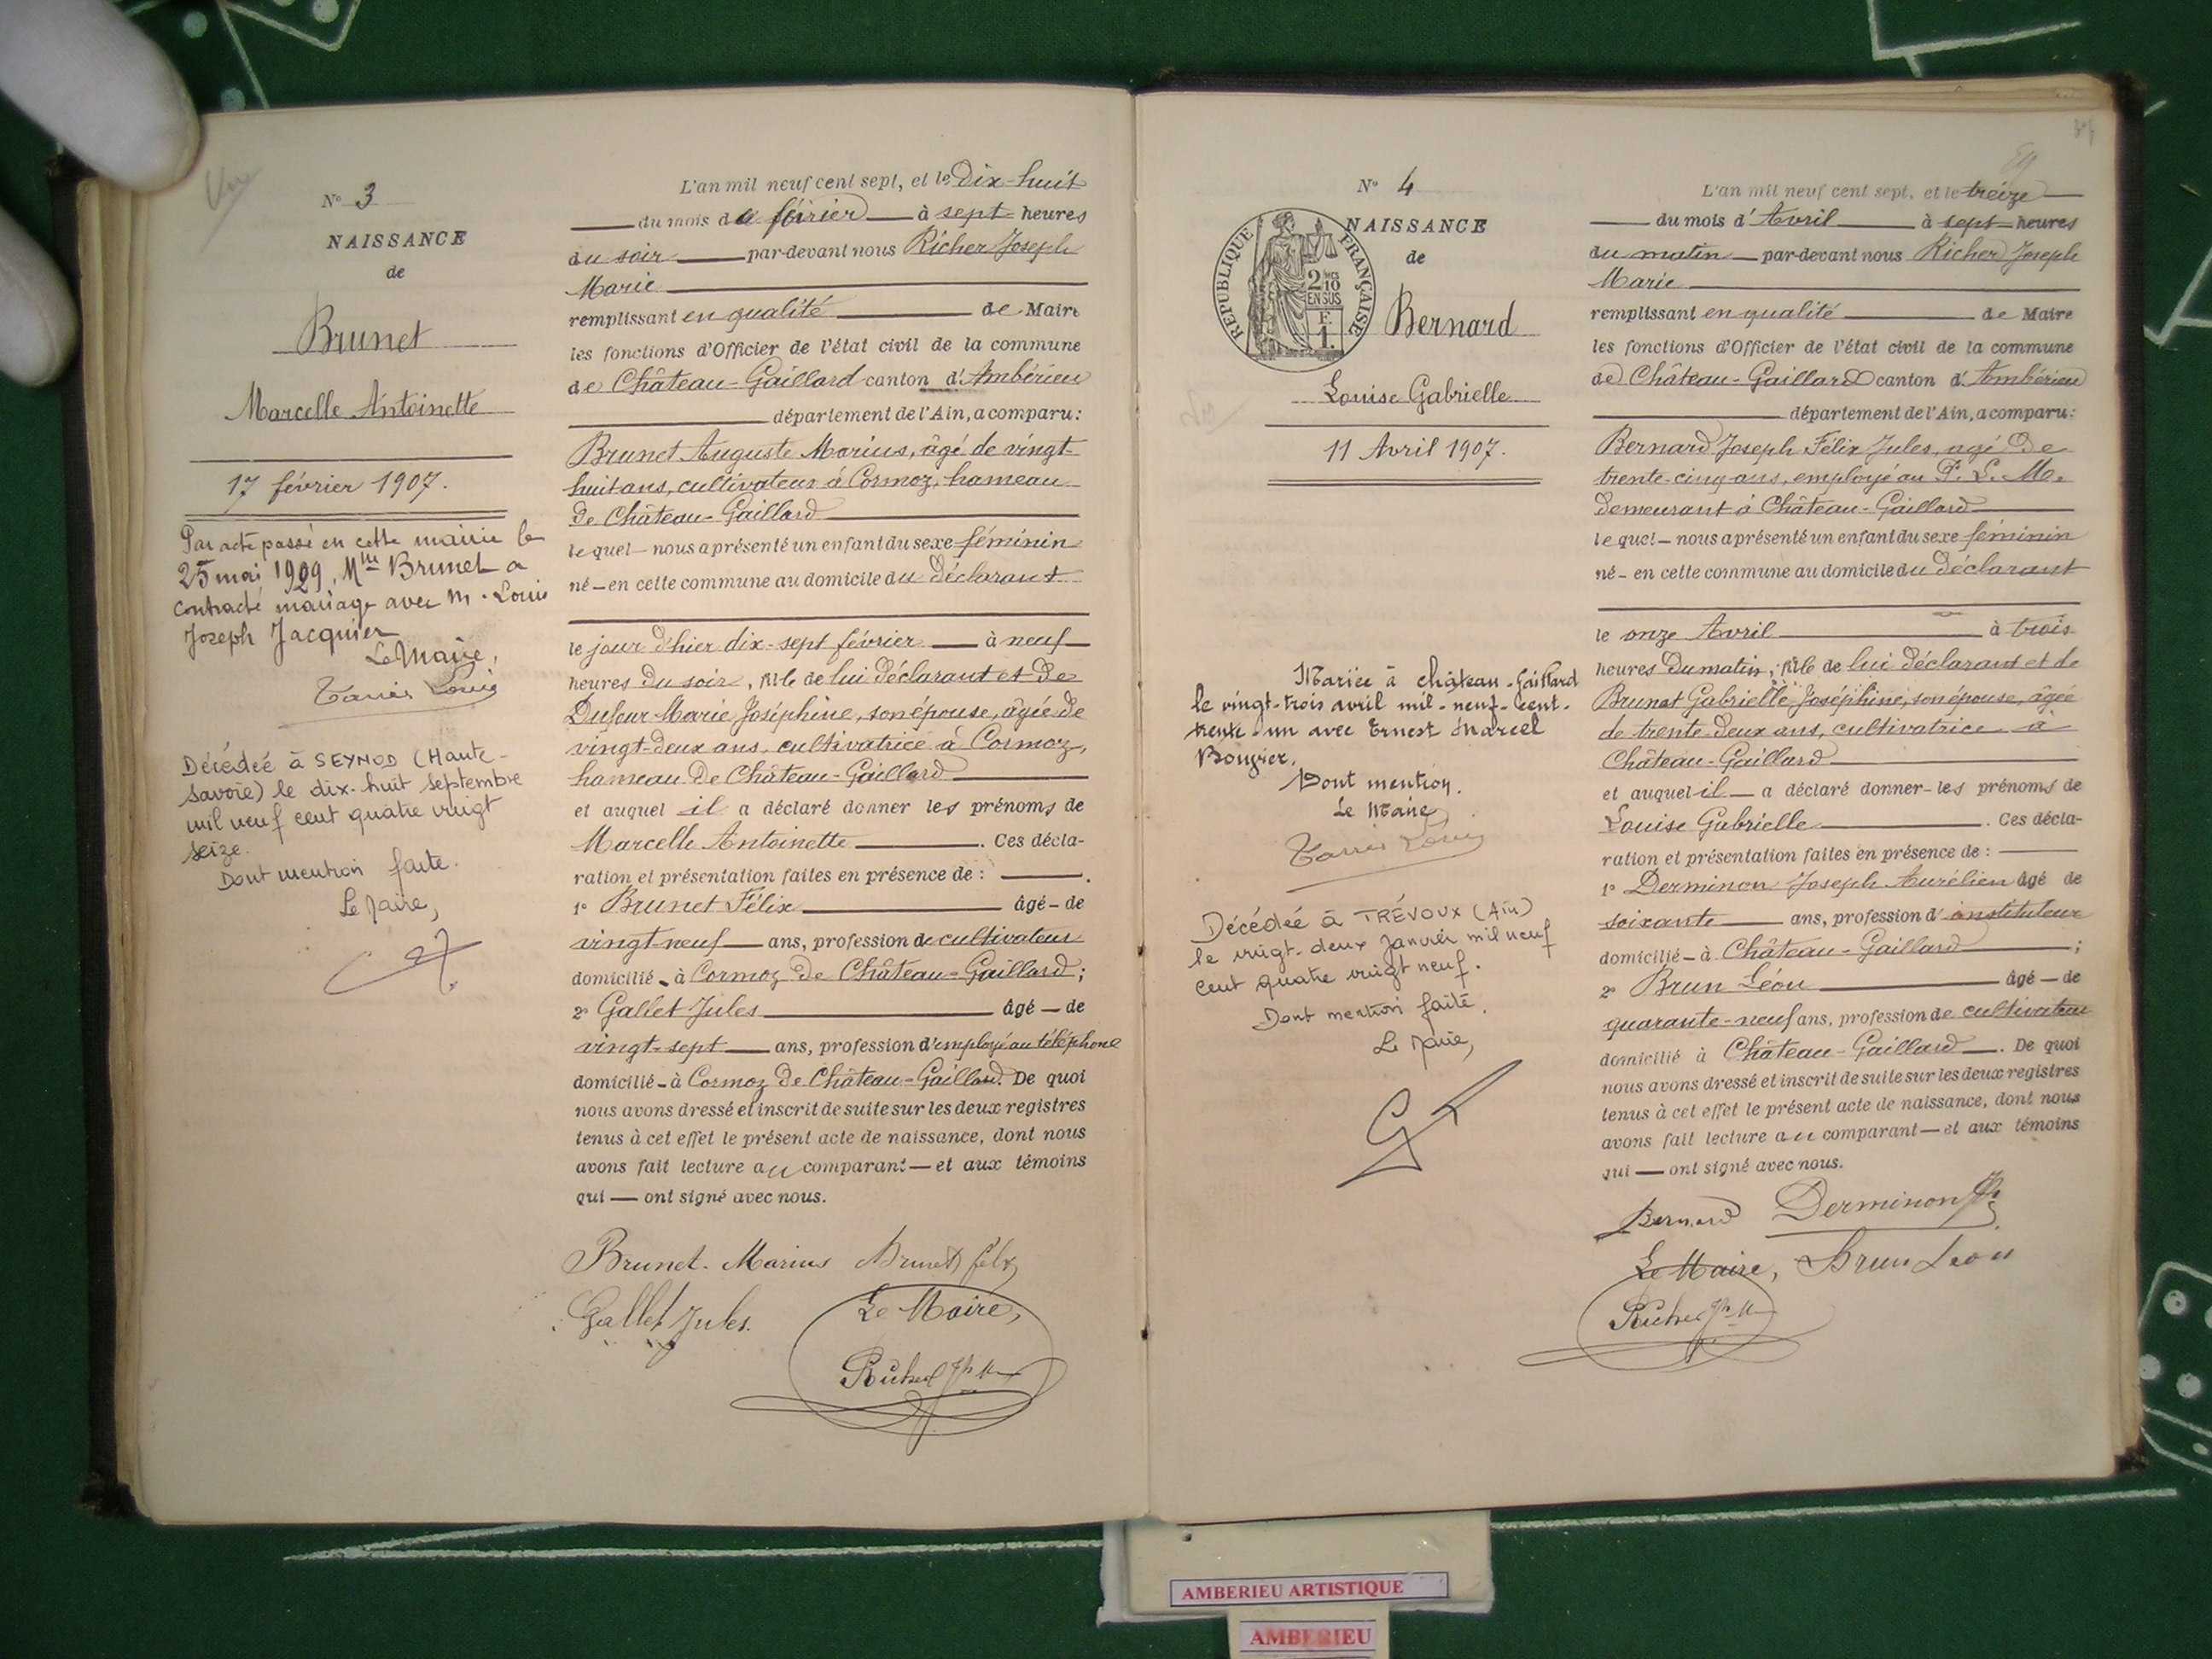 N° 3
NAISSANCE
de
Brunet
Marcelle Antoinette
17 février 1907.
Par acte passé en cette mairie le
25 mai 1929, Mlle Brunet a
contracté mariage avec M. Louis
Joseph Jacquier
Le Maire,
Décédée à SEYNOD (Haute-
Savoie) le dix-huit septembre
mil neuf cent quatre vingt
seize.
Dont mention faite.
Le Maire,
L'an mil neuf cent sept, et le dix-huit
du mois de février à sept heures
du soir par-devant nous Richer Joseph
Marie
remplissant en qualité de Maire
les fonctions d'Officier de l'état civil de la commune
de Château-Gaillard canton d'Ambérieu
département de l'Ain, a comparu:
Brunet Auguste Marius, âgé de vingt-
huit ans, cultivateur à Cormoz, hameau
de Château-Gaillard
lequel nous a présenté un enfant du sexe féminin
né en cette commune au domicile du déclarant
le jour d'hier dix-sept février à neuf
heures du soir, fille de lui déclarant et de
Dufour Marie Joséphine, son épouse, âgée de
vingt-deux ans, cultivatrice à Cormoz,
hameau de Château-Gaillard
et auquel il a déclaré donner les prénoms de
Marcelle Antoinette. Ces décla-
ration et présentation faites en présence de :
1° Brunet Félix âgé de
vingt-neuf ans, profession de cultivateur
domicilié à Cormoz de Château-Gaillard;
2° Gallet Jules âgé de
vingt-sept ans, profession d'employé au téléphone
domicilié à Cormoz de Château-Gaillard. De quoi
nous avons dressé et inscrit de suite sur les deux registres
tenus à cet effet le présent acte de naissance, dont nous
avons fait lecture au comparant et aux témoins
qui ont signé avec nous.
Brunet. Marius Brunet félix
Gallet Jules. Le Maire,
Richer Jph Mie
N° 4
NAISSANCE
de
REPUBLIQUE FRANÇAISE
2/10
EN SUS
F
1.
Bernard
Louise Gabrielle
11 Avril 1907.
Mariée à Château-Gaillard
le vingt-trois avril mil-neuf-cent-
trente-un avec Ernest Marcel
Bougier.
Dont mention.
Le Maire
Décédée à TRÉVOUX (Ain)
le vingt-deux Janvier mil neuf
cent quatre vingt neuf.
Dont mention faite.
Le Maire,
L'an mil neuf cent sept, et le treize
du mois d'Avril à sept heures
du matin par-devant nous Richer Joseph
Marie
remplissant en qualité de Maire
les fonctions d'Officier de l'état civil de la commune
de Château-Gaillard canton d'Ambérieu
département de l'Ain, a comparu:
Bernard Joseph Félix Jules, agé de
trente-cinq ans, employé au P. L. M.
demeurant à Château-Gaillard
lequel nous a présenté un enfant du sexe féminin
né en cette commune au domicile du déclarant
le onze Avril à trois
heures du matin, fille de lui déclarant et de
Brunet Gabrielle Joséphine, son épouse, âgée
de trente-deux ans, cultivatrice à
Château-Gaillard
et auquel il a déclaré donner les prénoms de
Louise Gabrielle. Ces décla-
ration et présentation faites en présence de :
1° Derminon Joseph Aurélien âgé de
soixante ans, profession d'instituteur
domicilié à Château-Gaillard;
2° Brun Léon âgé de
quarante-neuf ans, profession de cultivateur
domicilié à Château-Gaillard. De quoi
nous avons dressé et inscrit de suite sur les deux registres
tenus à cet effet le présent acte de naissance, dont nous
avons fait lecture au comparant et aux témoins
qui ont signé avec nous.
Bernard Derminon
Le Maire, Brun Leon
Richer Jph Mie
AMBERIEU ARTISTIQUE
AMBERIEU